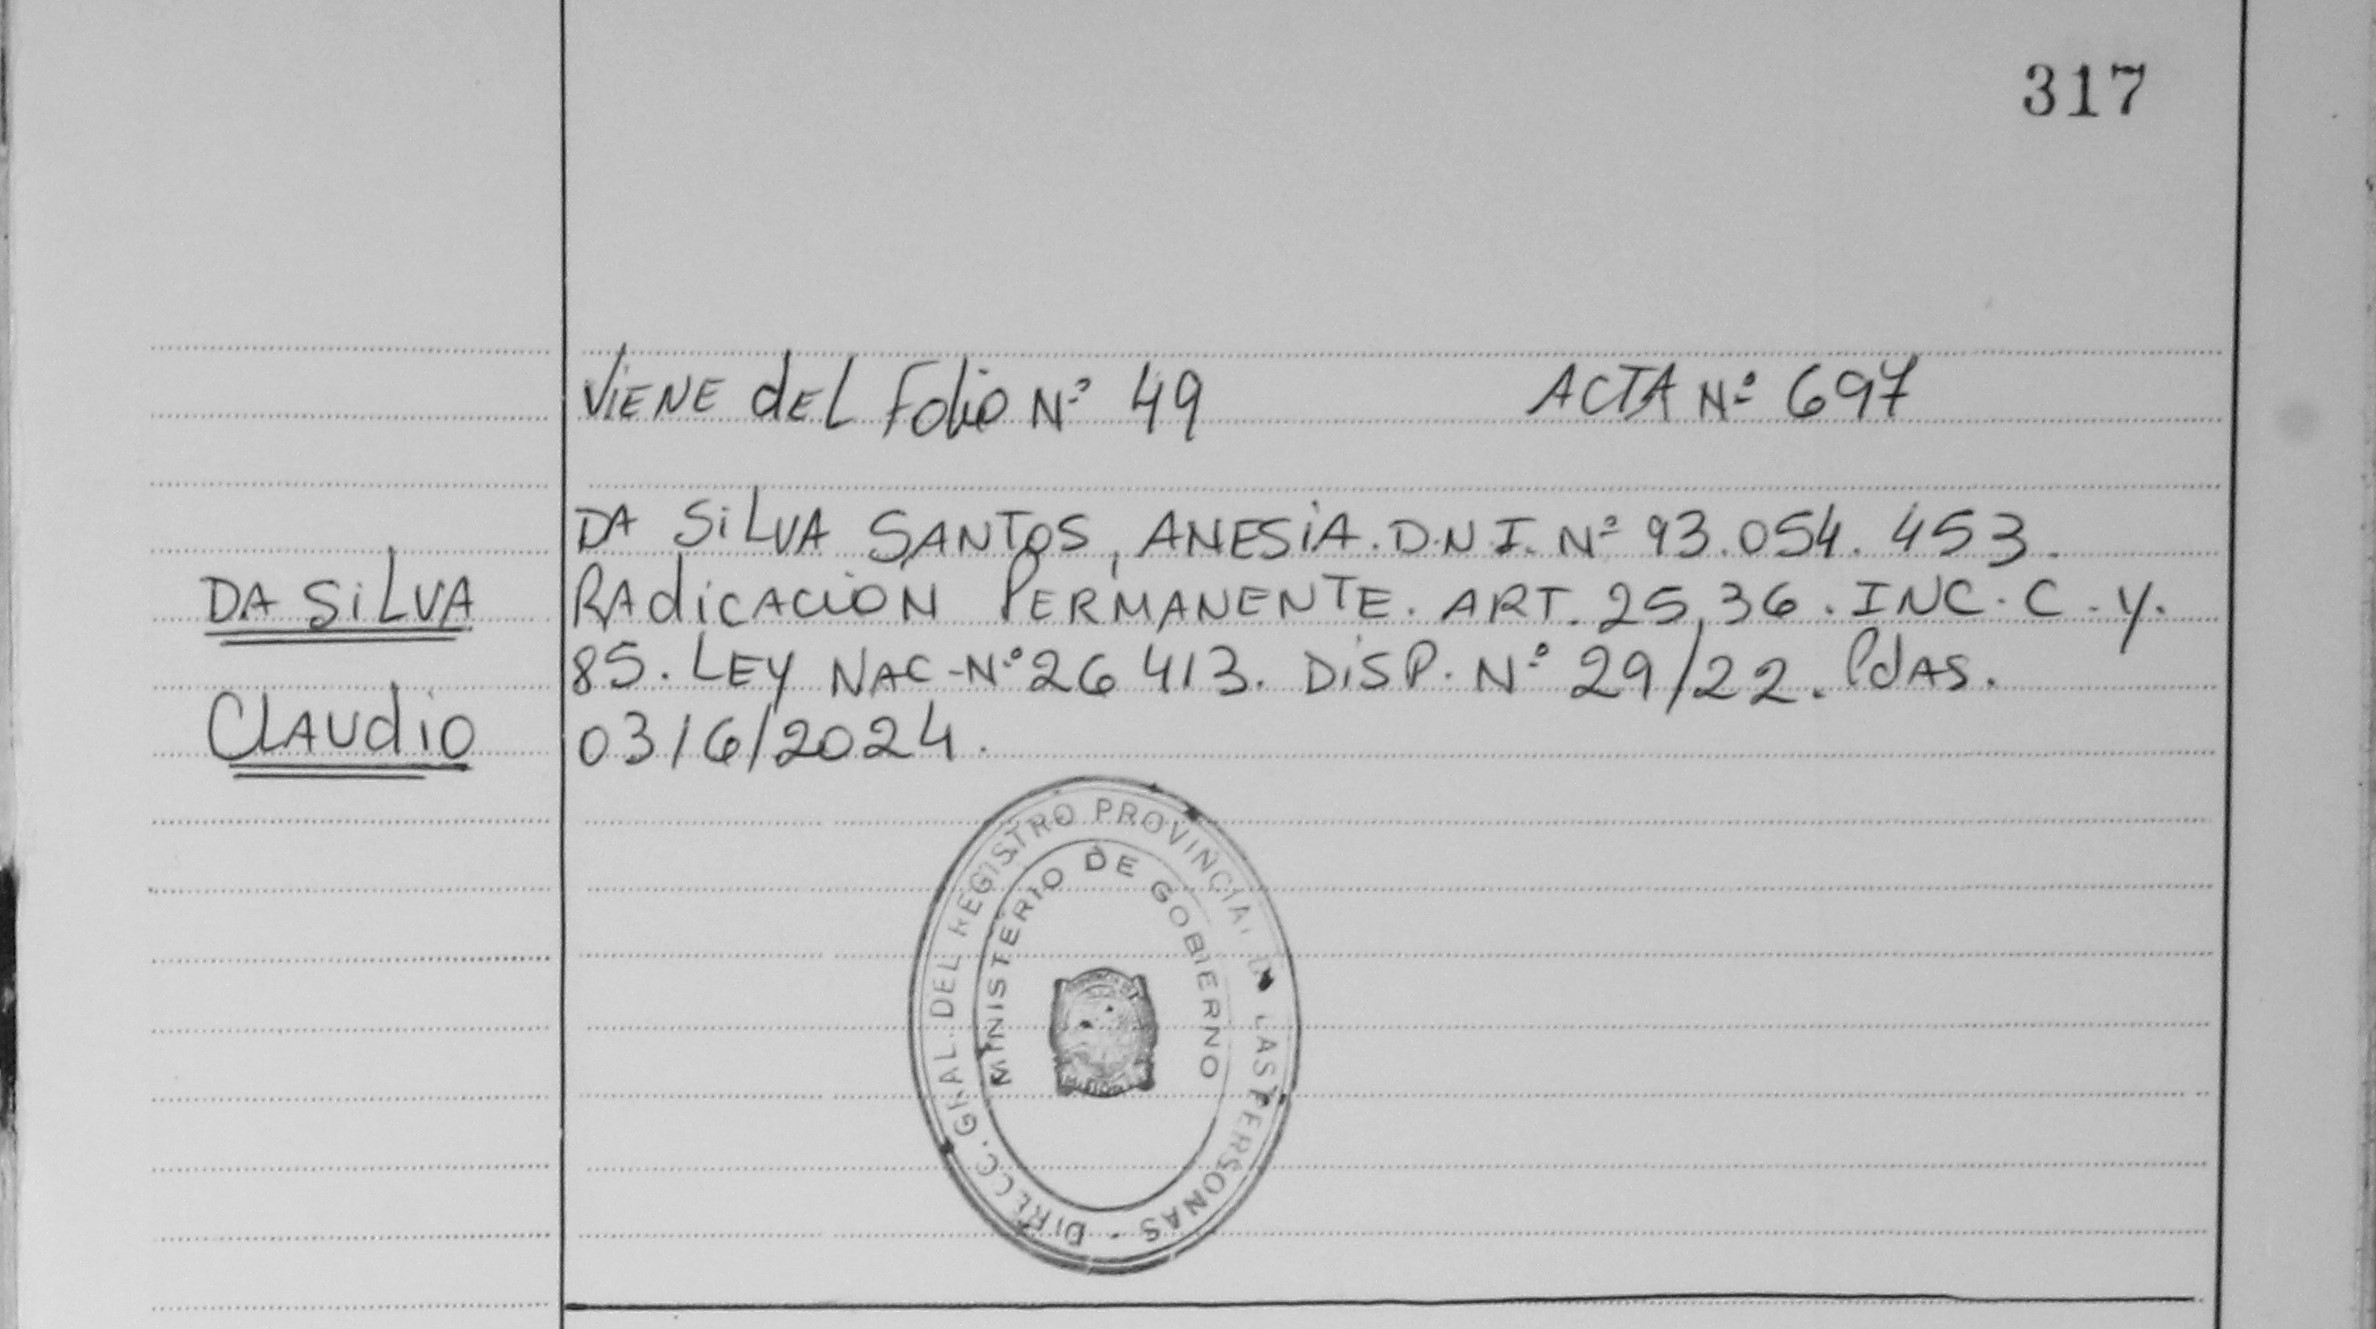 317
ViENE dEL Folio Nº 49 ACTA Nº 697
DA SiLVA SANTOS, ANESiA. D.N.I. Nº 93.054.453.
DA SiLVA
RAdiCACiÓN PERMANENTE. ART. 25,36. INC. C. Y.
85. LEY NAC-Nº 26 413. DiSP. Nº 29/22. PdAS.
CLAUdio
03/6/2024.
DIRECC. GRAL. DEL REGISTRO PROVINCIAL DE LAS PERSONAS
MINISTERIO DE GOBIERNO